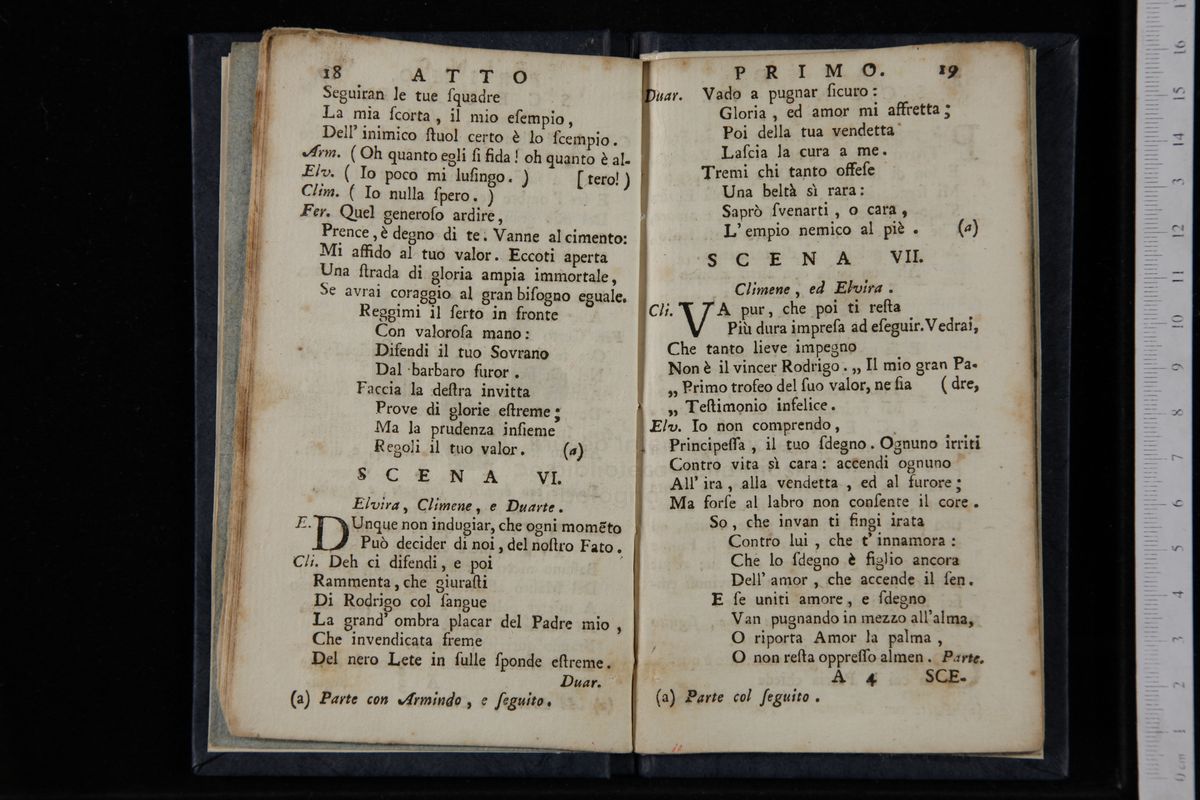 18 ATTO
Seguiran le tue ſquadre
La mia ſcorta, il mio eſempio,
Dell' inimico ſtuol certo è lo ſcempio.
Arm. ( Oh quanto egli ſi fida! oh quanto è al-
Elv. ( Io poco mi luſingo. ) [tero!)
Clim. ( Io nulla ſpero. )
Fer. Quel generoſo ardire,
Prence, è degno di te. Vanne al cimento:
Mi affido al tuo valor. Eccoti aperta
Una ſtrada di gloria ampia immortale,
Se avrai coraggio al gran biſogno eguale.
Reggimi il ſerto in fronte
Con valoroſa mano:
Difendi il tuo Sovrano
Dal barbaro furor.
Faccia la deſtra invitta
Prove di glorie eſtreme;
Ma la prudenza inſieme
Regoli il tuo valor. (a)
SCENA VI.
Elvira, Climene, e Duarte.
E. DUnque non indugiar, che ogni momẽto
Può decider di noi, del noſtro Fato.
Cli. Deh ci difendi, e poi
Rammenta, che giuraſti
Di Rodrigo col ſangue
La grand' ombra placar del Padre mio,
Che invendicata freme
Del nero Lete in ſulle ſponde eſtreme.
Duar.
(a) Parte con Armindo, e ſeguito.
PRIMO. 19
Duar. Vado a pugnar ſicuro:
Gloria, ed amor mi affretta;
Poi della tua vendetta
Laſcia la cura a me.
Tremi chi tanto offeſe
Una beltà sì rara:
Saprò ſvenarti, o cara,
L' empio nemico al piè. (a)
SCENA VII.
Climene, ed Elvira.
Cli. VA pur, che poi ti reſta
Più dura impreſa ad eſeguir. Vedrai,
Che tanto lieve impegno
Non è il vincer Rodrigo. „ Il mio gran Pa-
„ Primo trofeo del ſuo valor, ne ſia (dre,
„ Teſtimonio infelice.
Elv. Io non comprendo,
Principeſſa, il tuo ſdegno. Ognuno irriti
Contro vita sì cara: accendi ognuno
All' ira, alla vendetta, ed al furore;
Ma forſe al labro non conſente il core.
So, che invan ti fingi irata
Contro lui, che t' innamora:
Che lo ſdegno è figlio ancora
Dell' amor, che accende il ſen.
E ſe uniti amore, e ſdegno
Van pugnando in mezzo all'alma,
O riporta Amor la palma,
O non reſta oppreſſo almen. Parte.
A 4 SCE-
(a) Parte col ſeguito.
0 cm 1 2 3 4 5 6 7 8 9 10 11 12 13 14 15 16 17